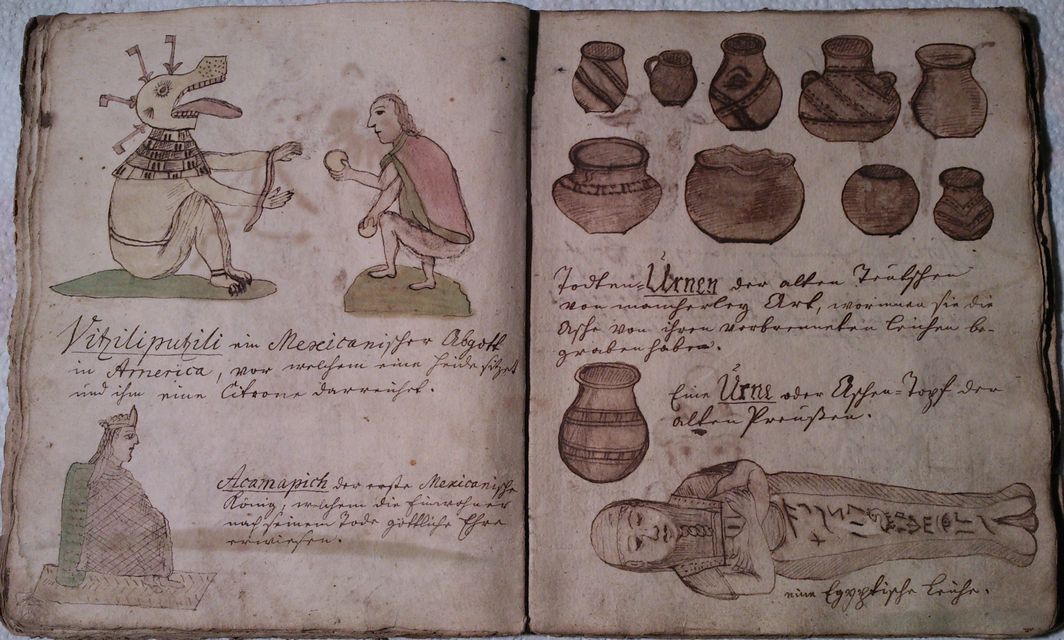 Vitziliputzli ein Mexicanischer Abgott
in America, vor welchem eine Heide sitzet
und ihm eine Citrone darreichet.
Acamapich der erste Mexicanische
König, welchem die Einwohner
nach seinem Tode göttliche Ehre
erwiesen.
Todten-Urnen der alten Teutschen
von mancherley Art, worinnen sie die
Asche von ihren verbrenneten Leichen be-
graben haben.
Eine Urne oder Aschen-Topf der
alten Preußen.
eine Egyptische Leiche.